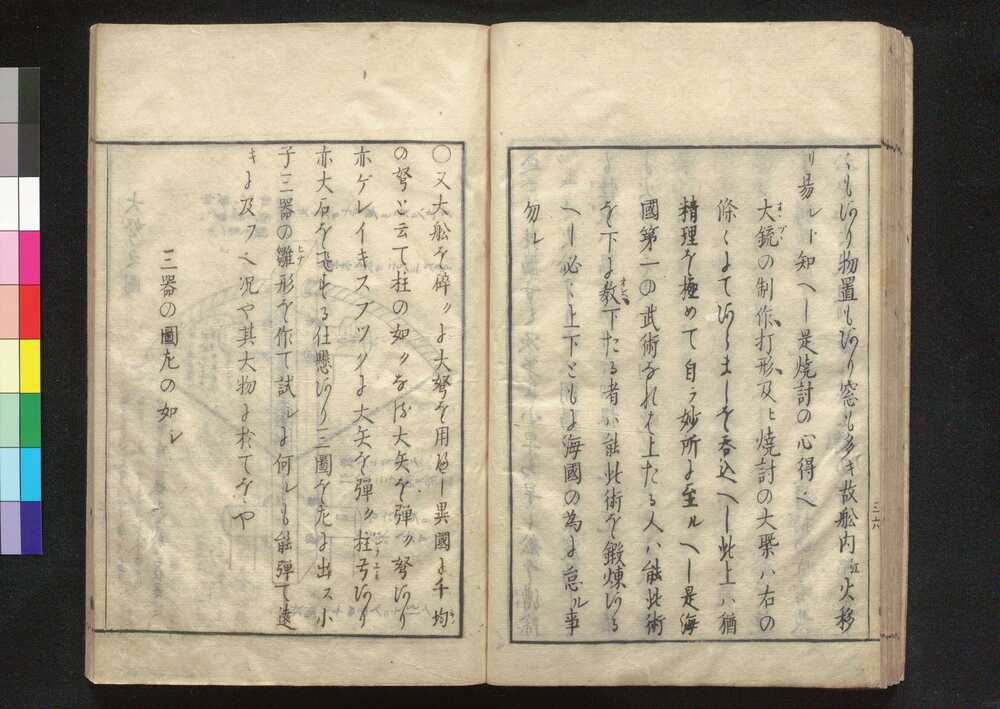 くもあり物置もあり窓も多キ故舩内江火移
リ易シト知ヘシ是焼討の心得ヘ
大銃の制作打形及ヒ焼討の大槩ハ右の
條々よてあらましを呑込ヘし此上ハ猶
精理を極めて自ラ妙所に至ルヘし是海
國第一の武術なれは上たる人ハ能此術
を下に教下たる者ハ能此術を鍛煉ある
ヘし必々上下ともに海國の為に怠ル事
勿レ
三六
〇又大舩を碎クに大弩を用ヘし異國に千均
の弩と云て柱の如クなる大矢を弾ク弩あり
亦ゲレイキスブツクに大矢を弾ク柱弓あり
亦大石をもする仕懸あり三圖を左に出ス小
子三器の雛形を作て試ルに何レも能弾て遠
キに及フヘ况や其大物に於てをや
三器の圖左の如シ